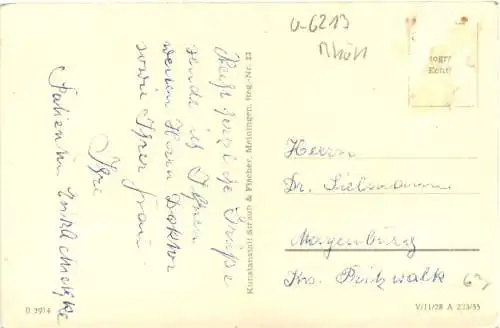 U-6213
Rhön
togra
Echt
Recht herzliche Grüße
sende ich Ihnen
werten Herrn Doktor
sowie Ihrer Frau
Ihre
Patientin
Kunstanstalt Straub & Fischer, Meiningen, Reg.-Nr. 23
Herrn
Dr. Sielmann
Meyenburg
Krs. Pritzwalk
B 2914
V/11/28 A 223/55